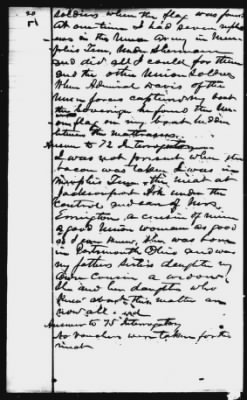 20
soldier when the flag was found
at our time. I had seven nephews
in the Union Army in Memphis
Tenn, Under Sherman
and did all I could for them
and the other Union Soldiers
When Admiral Davis of the
Union forces captured my boat
the Sovereign he found the Union
flag on my boat hidden
between the mattresses.
Answer to 72 Interrogatory
I was not present when the
bacon was taken. I was in
Memphis Tenn. the meat at
under the
control and care of Mrs.
Errington, a cousin of mine
a good Union woman as good
as I ever knew, she was born
in Portsmouth Ohio and was
my fathers sister's daughter my
own cousin a widow,
She and her daughter who
knew about this matter are
now all
Answer to 75 Interrogatory
No vouchers were taken for the
meat